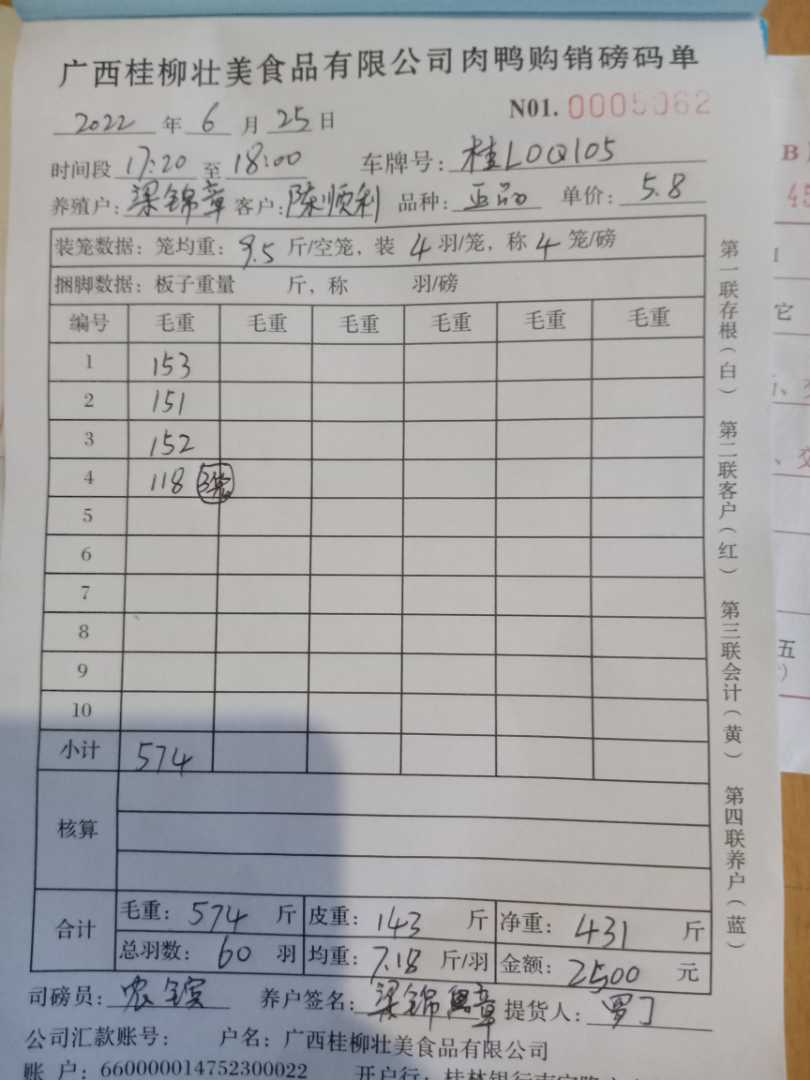 广西桂柳壮美食品有限公司肉鸭购销磅码单
2022 年 6 月 25 日 N01. 0005062
时间段 17:20 至 18:00 车牌号: 桂L0Q105
养殖户: 梁锦章 客户: 陈顺利 品种: 正品 单价: 5.8
装笼数据: 笼均重: 9.5 斤/空笼, 装 4 羽/笼, 称 4 笼/磅
捆脚数据: 板子重量 斤, 称 羽/磅
编号 毛重 毛重 毛重 毛重 毛重 毛重
1 153
2 151
3 152
4 118 3笼
5
6
7
8
9
10
小计 574
核算
合计 毛重: 574 斤 皮重: 143 斤 净重: 431 斤
总羽数: 60 羽 均重: 7.18 斤/羽 金额: 2500 元
司磅员: 养户签名: 梁锦章 提货人: 罗丁
公司汇款账号: 户名: 广西桂柳壮美食品有限公司
账 户: 660000014752300022 开户行: 桂林银行南宁
第一联存根(白) 第二联客户(红) 第三联会计(黄) 第四联养户(蓝)
B
45
它
五